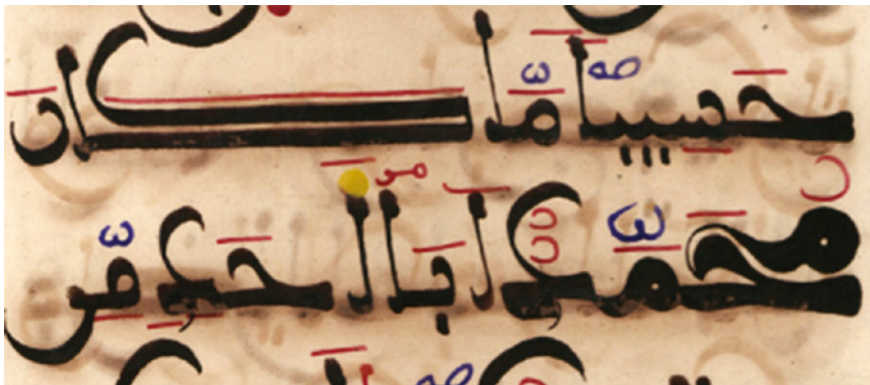 حَسِيبًا مَّا كَانَ
مُحَمَّدٌ أَبَا أَحَدٍ مِّن